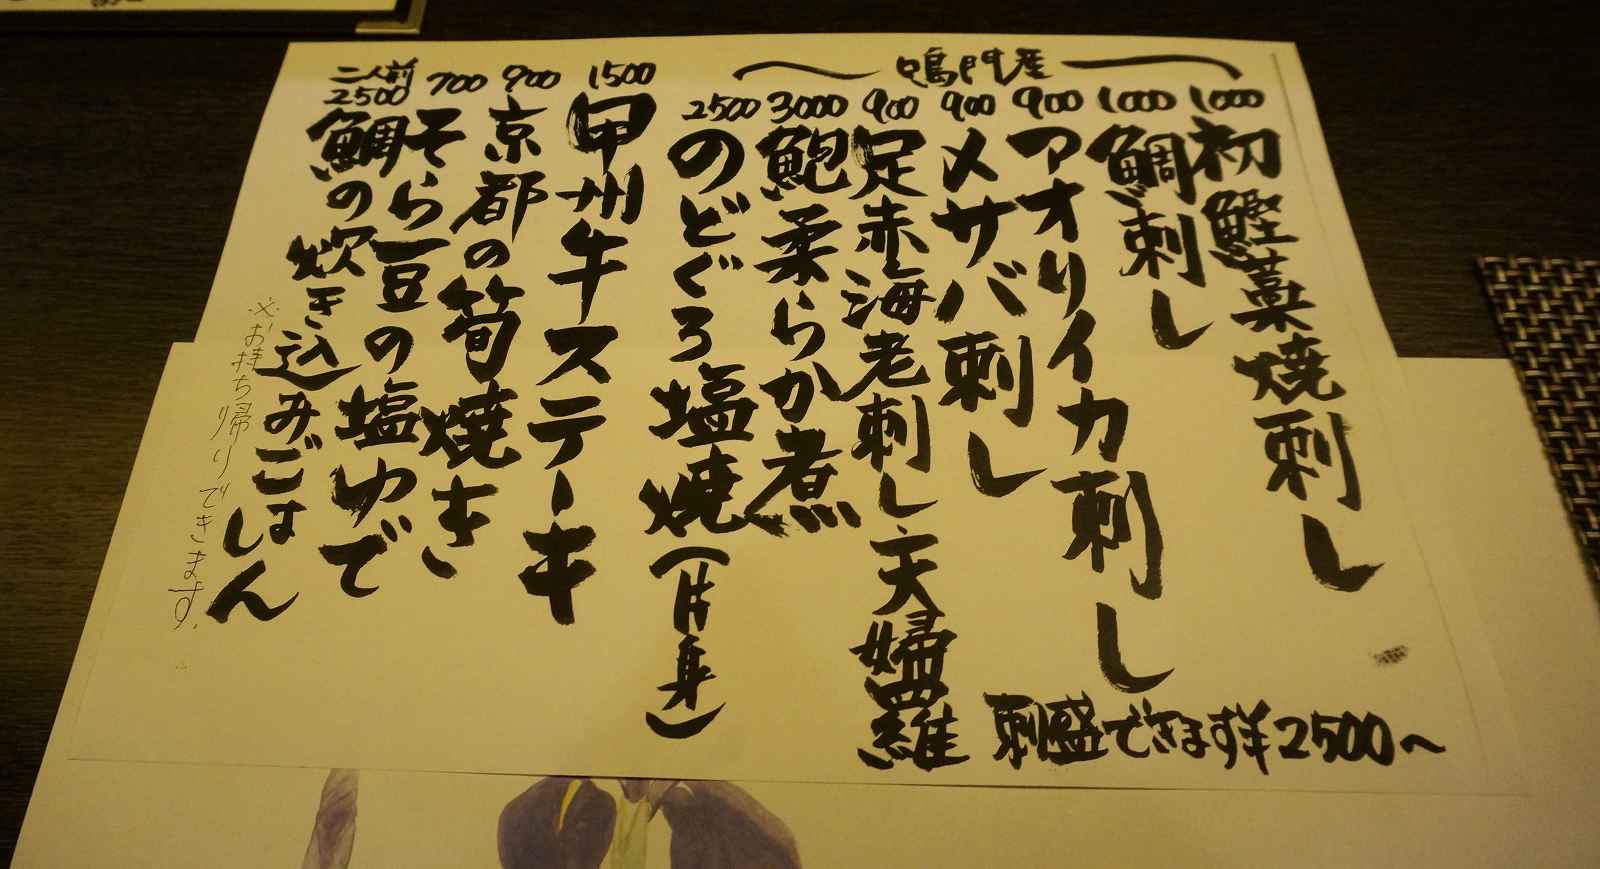 鳴門産
1000 初鰹藁焼刺し
1000 鯛刺し
900 アオリイカ刺し
900 〆サバ刺し
900 足赤海老刺し・天婦羅
3000 鮑柔らか煮
2500 のどぐろ塩焼(片身)
1500 甲州牛ステーキ
900 京都の筍焼き
700 そら豆の塩ゆで
二人前 2500 鯛の炊き込みごはん
※お持ち帰りできます。
刺盛できます¥2500〜